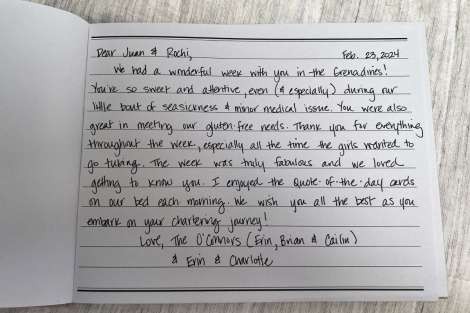 Dear Juan & Rochi, Feb. 23, 2024
We had a wonderful week with you in the Grenadines!
You're so sweet and attentive, even (& especially) during our
little bout of seasickness & minor medical issue. You were also
great in meeting our gluten-free needs. Thank you for everything
throughout the week, especially all the time the girls wanted to
go tubing. The week was truly fabulous and we loved
getting to know you. I enjoyed the quote-of-the-day cards
on our bed each morning. We wish you all the best as you
embark on your chartering journey!
Love, The O'Connors (Erin, Brian & Cailin)
& Erin & Charlotte